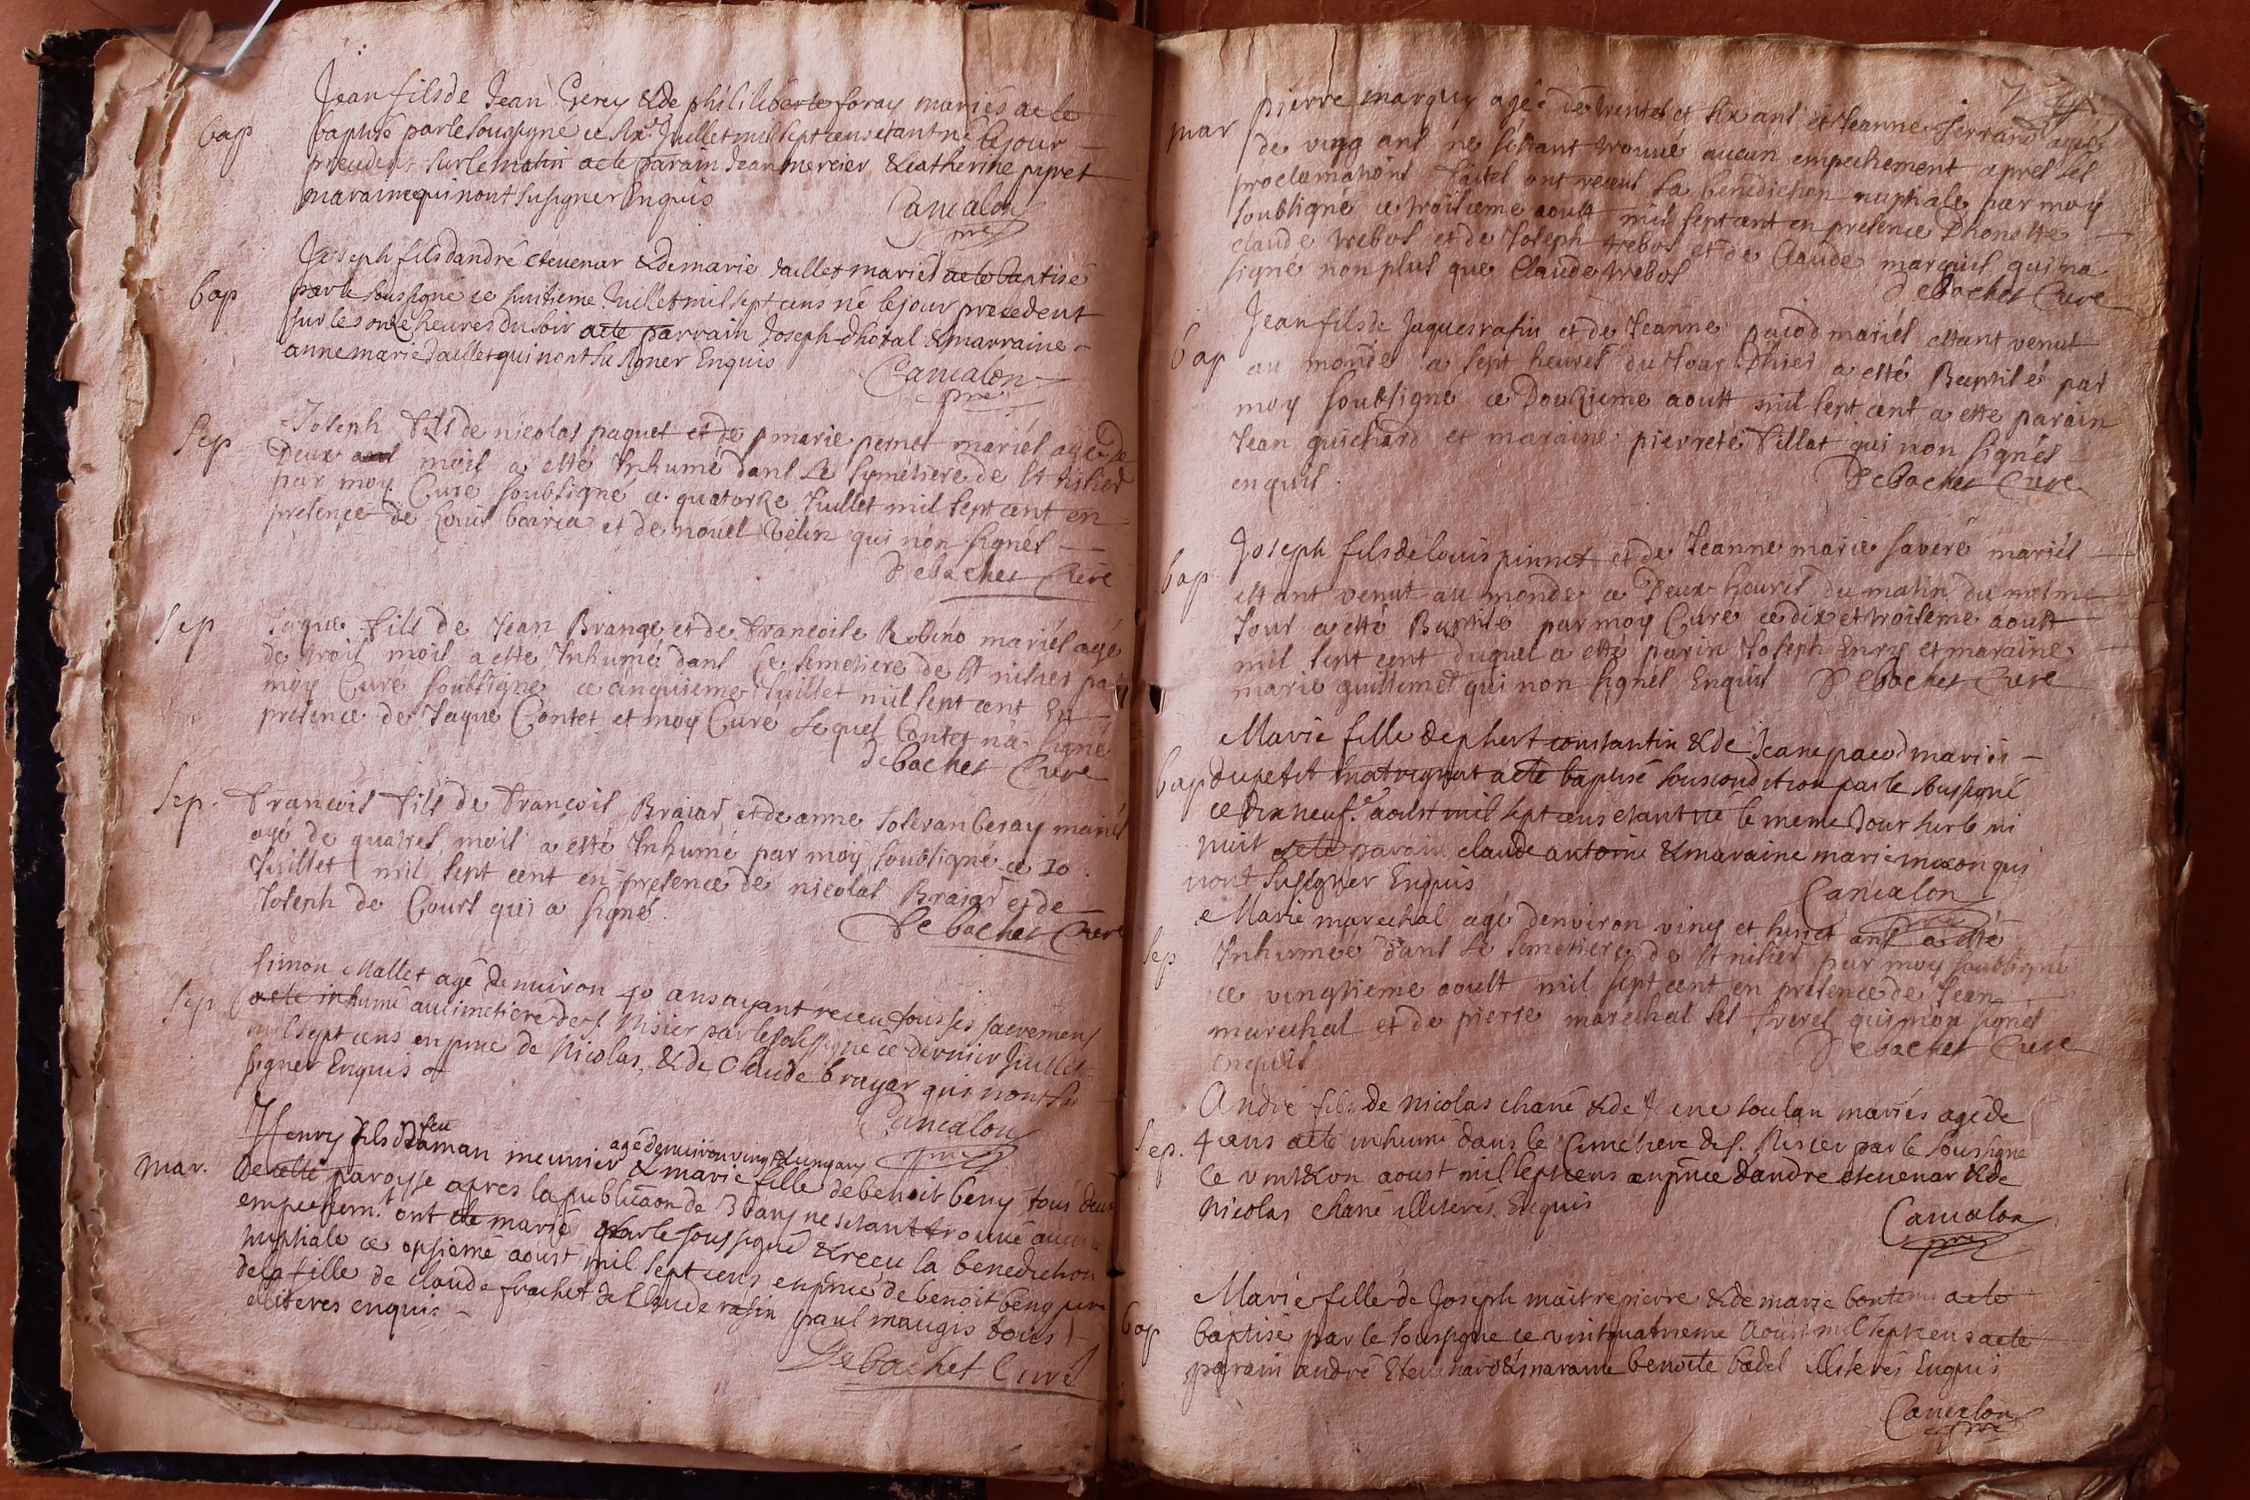 Jean fils de Jean Gerey & de philiberte foray mariés a ete
bap baptisé par le soussigné ce six.e Juillet mil sept cens etant né le jour
precedent sur le matin a ete parain Jean mercier & Catherine pipret
maraine qui nont su signer Enquis
Cancalon
pre
Joseph fils dandré etevenar & de marie daillet mariés a ete baptisé
bap par le soussigné ce huitieme Juillet mil sept cens né le jour precedent
sur les onze heures du soir a ete parrain Joseph dhotal & marraine
anne marie daillet qui nont su signer Enquis
Cancalon
pre
Joseph fils de nicolas paquet et de marie pernet mariés agé de
Sep Deux mois a esté Inhumé dans le symetiere de st nisier
par moy Curé soubsigné ce quatorze Juillet mil sept cent en
presence de Louis boiria et de nouel velin qui non signés
Debachet Curé
Sep Jaque fils de Jean Brange et de francoise Robino mariés agé
de trois mois a esté Inhumé dans le semetiere de st nisier par
moy Curé soubsigné ce cinquieme Juillet mil sept cent En
presence de Jaque Contet et moy Curé lequel Contet na signé
debachet Curé
Sep. francois fils de francois Braiar et de anne beray mariés
agé de quatres mois a esté Inhumé par moy soubsigné ce 10
Juillet mil sept cent en presence de nicolas Braiar et de
Joseph de Court qui a signé.
Debachet Curé
Simon Mallet agé denviron 40 ans ayant receu tous ses sacremens
Sep a ete inhumé au cimetiere de s. Nisier par le soussigné ce dernier Juillet
mil sept cens en pnce de Nicolas, & de Claude brayar qui nont su
signer Enquis
Cancalon
pre
feu
Henry fils Daman meunier agé denviron vingt & un ans & marie fille de benoit beny tous deux
mar. de cette paroisse apres la publicaon de 3 bans ne setant trouvé aucun
empechem.t ont ete marié par le soussigné & receu la benediction
nuptiale ce onsieme aoust mil sept cens en pnce de benoit beny pere
de la fille de claude frachet de Claude rafin paul maugis tous
illiteres enquis
Debachet Curé
pierre marquis agée de trentes et six ans et Jeanne ferrand agée
mar de ving ans ne sestant trouvé aucun empechement apres les
proclamations faites ont receus la benediction nuptiale par moy
soubsigné ce troisieme aoult mil sept cent en presence Dhoneste
claude trebos et de Joseph trebos et de Claude marquis qui na
signé non plus que Claude trebos
debachet Curé
Jean fils de Jaques rafin et de Jeanne pacod mariés estant venut
bap au monde a sept heures du Jour Dhier a esté Baptisé par
moy soubsigné ce Douzieme aoult mil sept cent a esté parain
Jean guichard et maraine pierrete tillat qui non signés
enquis.
Debachet Curé
Joseph fils de louis pinnet et de Jeanne marie saveré mariés
bap estant venut au monde a Deux heures du matin du mesme
Jour a esté Baptisé par moy Curé ce dix et troiseme aoult
mil sept cent duquel a esté parin Joseph Enry et maraine
marie guillemet qui non signés Enquis Debachet Curé
Marie fille de phert constantin & de Jeane pacod mariés
bap du petit matrignat a ete baptisé sous condition par le soussigné
ce dix neuf.e aoust mil sept cens etant né le meme Jour sur le mi
nuit a ete parain claude antoine & maraine marie mixon qui
nont su signer Enquis
Cancalon
pre
Marie marechal agé denviron ving et huict ans a esté
Sep Inhumée dans le semetiere de st nisier par moy soubsigné
ce vingtieme aoult mil sept cent en presence de Jean
marechal et de pierre marechal ses freres qui non signés
enquis
Debachet Curé
André fils de Nicolas chané & de Jeane soulan mariés agé de
Sep. 4 ans a ete inhumé dans le Cimetiere de s. Nisier par le soussigné
ce vint & un aoust mil sept cens en pnce dandre etevenar & de
Nicolas chané illiterés Enquis
Cancalon
pre
Marie fille de Joseph maitrepierre & de marie a ete
bap baptisé par le soussigné ce vint quatrieme Aoust mil sept cens a ete
parain andré Etevenard & maraine benoite badel illiterés Enquis
Cancalon
pre